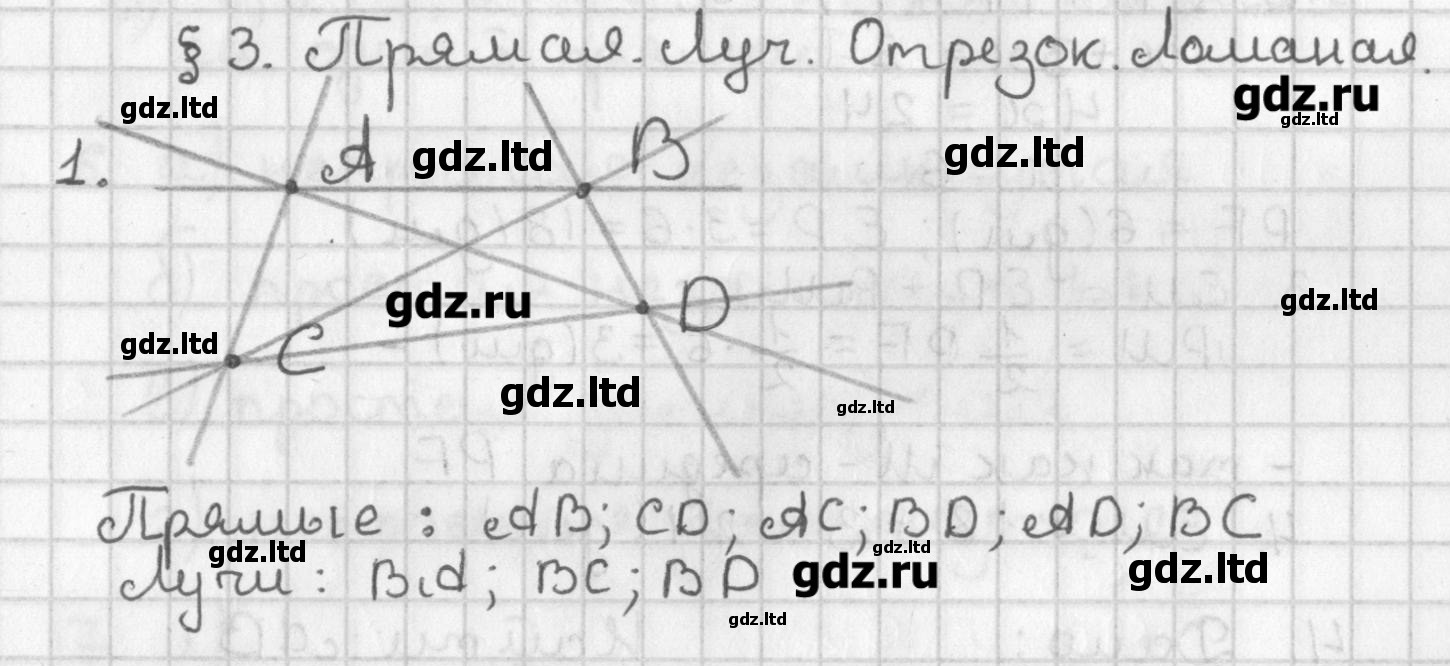 § 3. Прямая. Луч. Отрезок. Ломаная.
gdz.ltd gdz.ru
gdz.ltd
1. A gdz.ltd B gdz.ltd
gdz.ru D gdz.ltd
gdz.ltd C
gdz.ltd gdz.ltd
Прямые: AB; CD; AC; BD; AD; BC
gdz.ltd gdz.ltd
Лучи: BA; BC; BD gdz.ru gdz.ltd
gdz.ltd